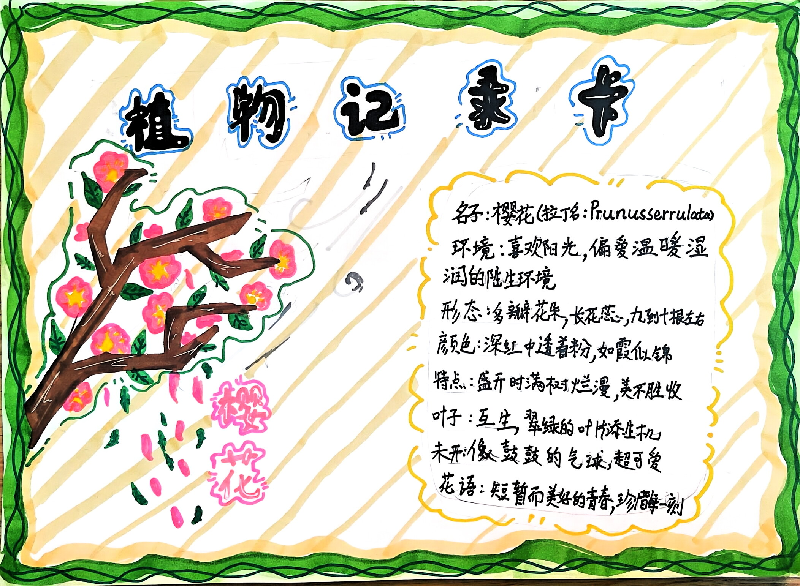 植物记录卡
名子:樱花(拉丁名:Prunusserrulata)
环境:喜欢阳光,偏爱温暖湿
润的陆生环境
形态:多瓣花朵,长花蕊,九到十根左右
颜色:深红中透着粉,如霞似锦
特点:盛开时满树烂漫,美不胜收
叶子:互生,翠绿的叶片添生机
未开:像鼓鼓的气球,超可爱
花语:短暂而美好的青春,珍惜每一刻
樱
花